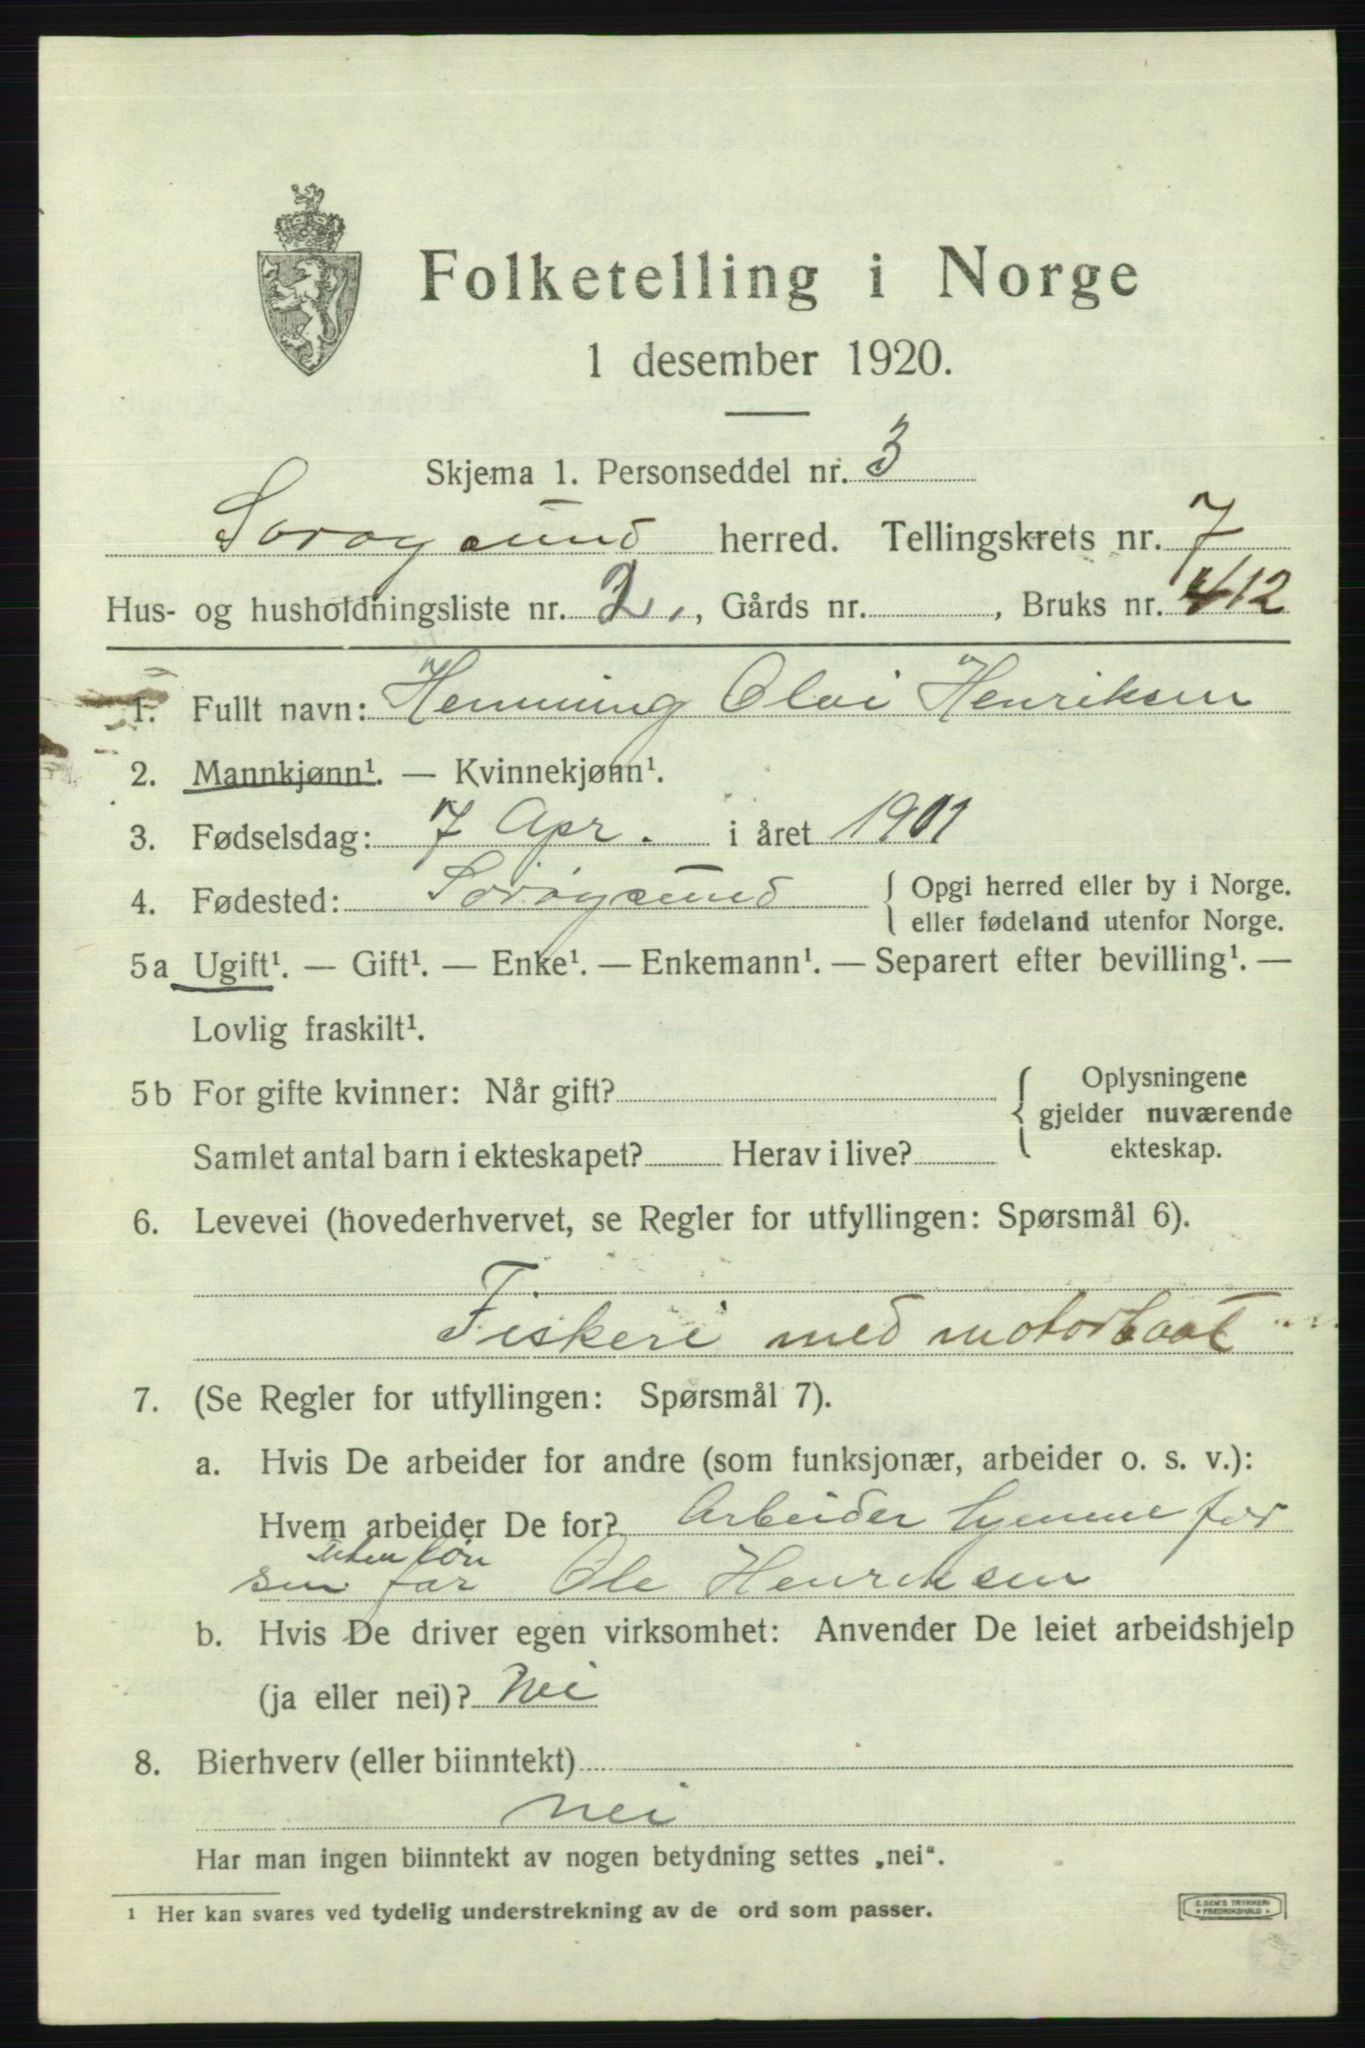 Folketelling i Norge
1 desember 1920.
Skjema 1. Personseddel nr. 3
Sørøysund herred. Tellingskrets nr. 7
Hus- og husholdningsliste nr. 2., Gårds nr. , Bruks nr. 412
1. Fullt navn: Henning Olai Henriksen
2. Mannkjønn¹. — Kvinnekjønn¹.
3. Fødselsdag: 7 Apr. i året 1901
4. Fødested: Sørøysund { Opgi herred eller by i Norge.
eller fødeland utenfor Norge.
5a Ugift¹. — Gift¹. — Enke¹. — Enkemann¹. — Separert efter bevilling¹. —
Lovlig fraskilt¹.
5b For gifte kvinner: Når gift? { Oplysningene
gjelder nuværende
Samlet antal barn i ekteskapet? Herav i live? ekteskap.
6. Levevei (hovederhvervet, se Regler for utfyllingen: Spørsmål 6).
Fiskeri med motorbaat
7. (Se Regler for utfyllingen: Spørsmål 7).
a. Hvis De arbeider for andre (som funksjonær, arbeider o. s. v.):
Hvem arbeider De for? Arbeider hjemme for
uten løn
sin far Ole Henriksen
b. Hvis De driver egen virksomhet: Anvender De leiet arbeidshjelp
(ja eller nei)? Nei
8. Bierhverv (eller biinntekt)
nei
Har man ingen biinntekt av nogen betydning settes „nei“.
1 Her kan svares ved tydelig understrekning av de ord som passer.
E. SEM'S TRYKKERI
* FREDRIKSHALD *